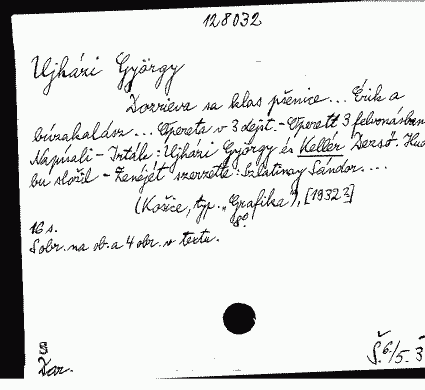 128032
Ujházi György
Dozrieva sa klas pšenice... Érik a
búzakalász... Opereta v 3 dejst. - Operett 3 felvonásban
Napísali - Irták: Ujházi György és Kellér Dezső. Hud
bu složil - Zenéjét szerzette: Szlatinay Sándor....
(Košice, typ. „Grafika"), [1932?]
8°.
16 s.
S obr. na ob. a 4 obr. v textu.
Š. 6./5. 3
Dar.